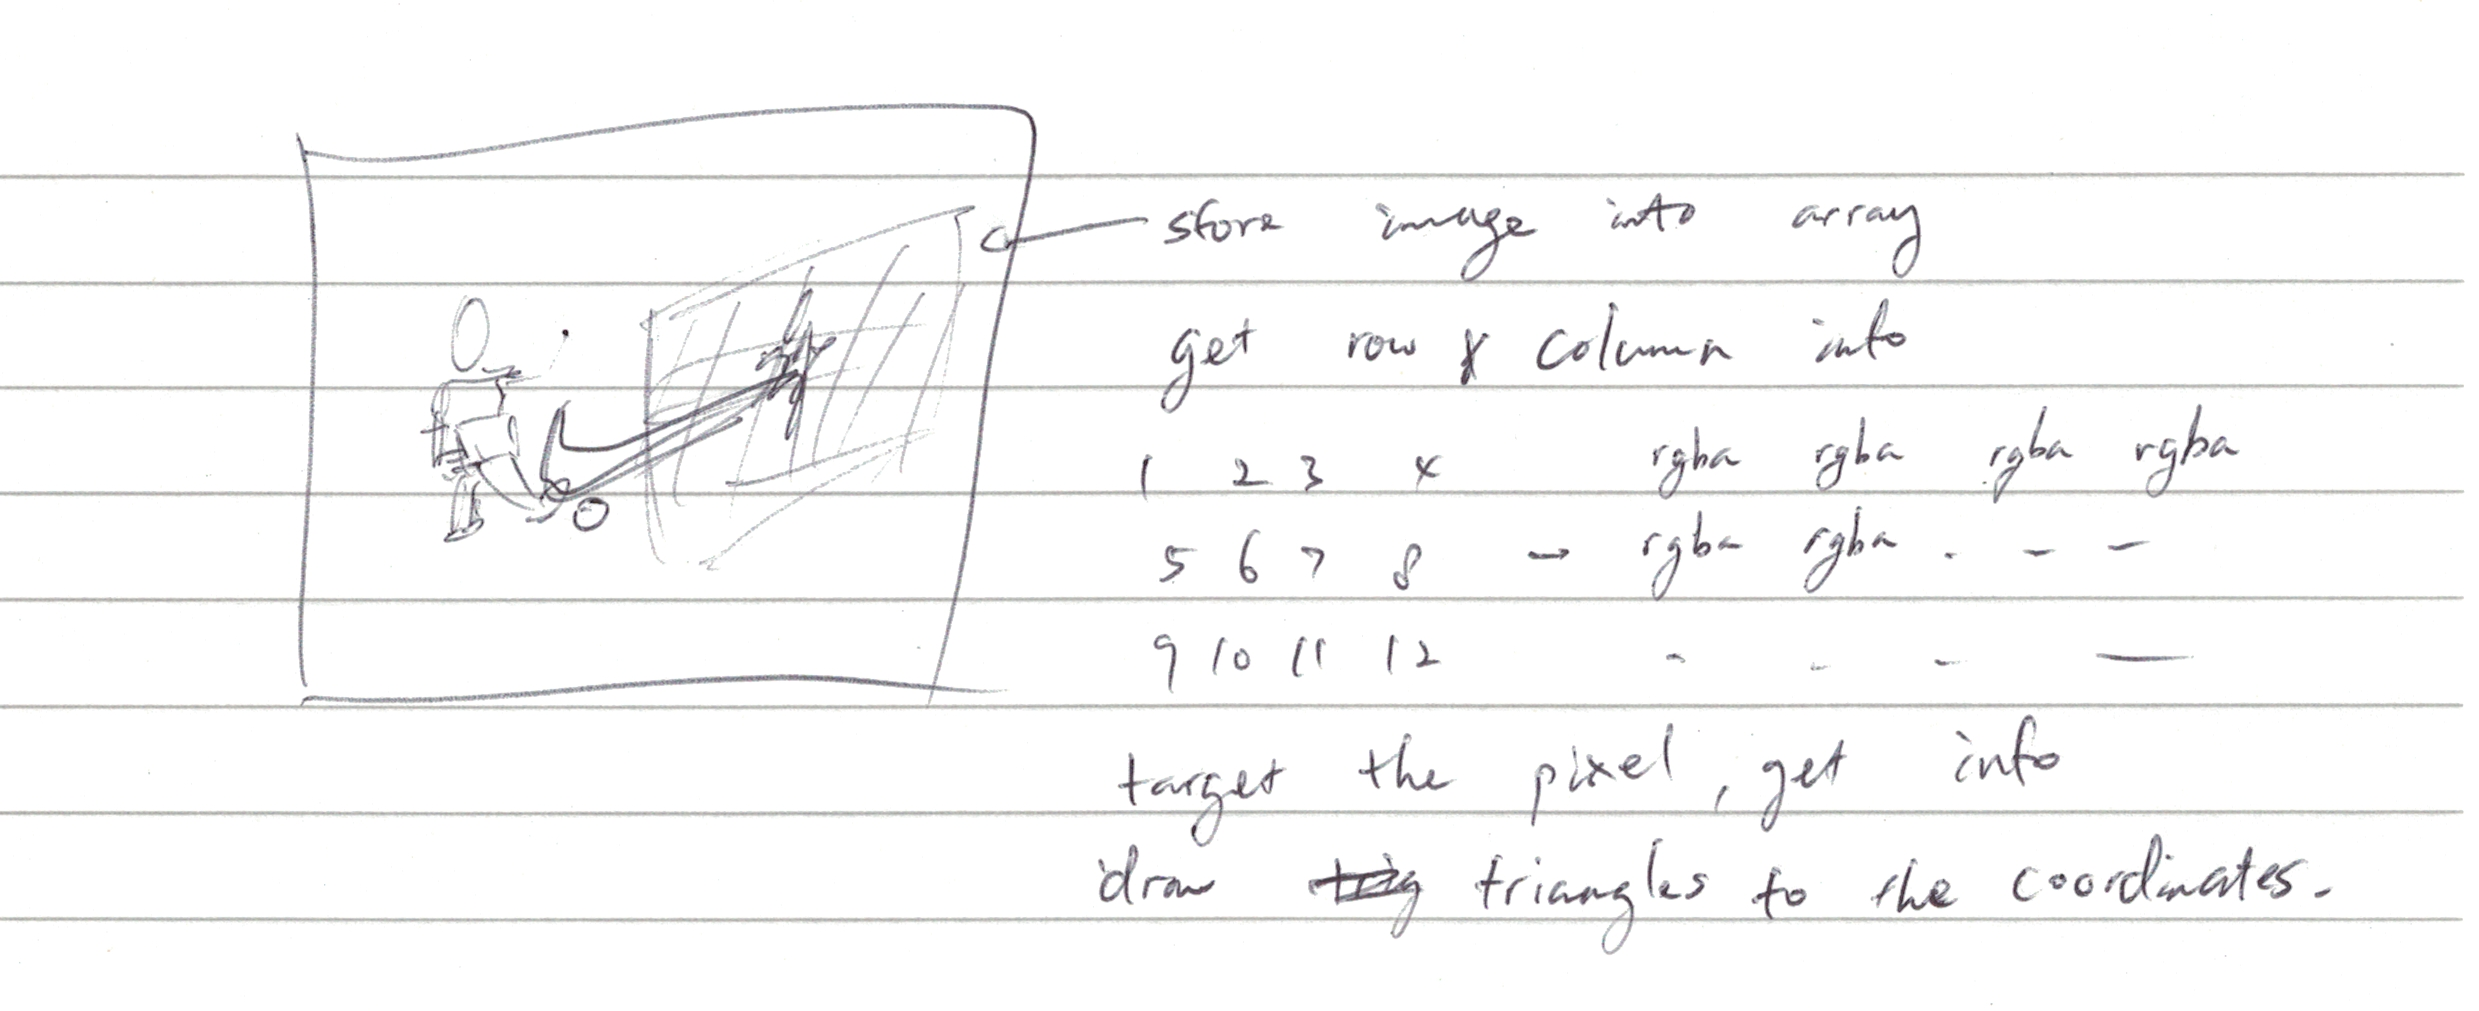 store image into array
get row x column info
1 2 3 4 rgba rgba rgba rgba
5 6 7 8 → rgba rgba . - -
9 10 11 12 - - - —
target the pixel, get info
draw triangles to the coordinates.